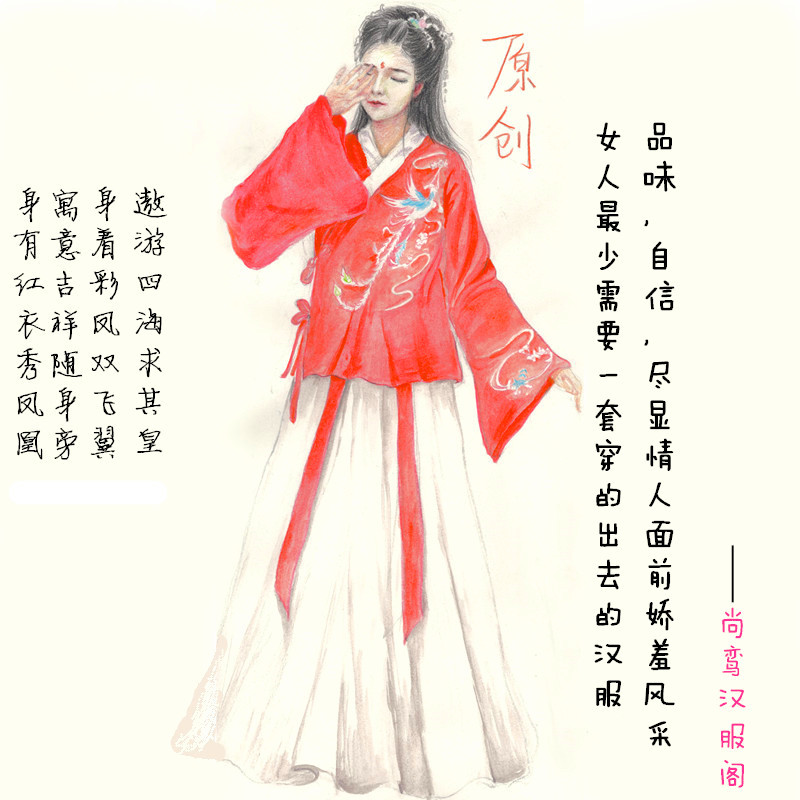 原创
品味，自信，尽显情人面前娇羞风采
女人最少需要一套穿的出去的汉服
——尚鸾汉服阁
遨游四海求其皇
身着彩凤双飞翼
寓意吉祥随身旁
身有红衣秀凤凰